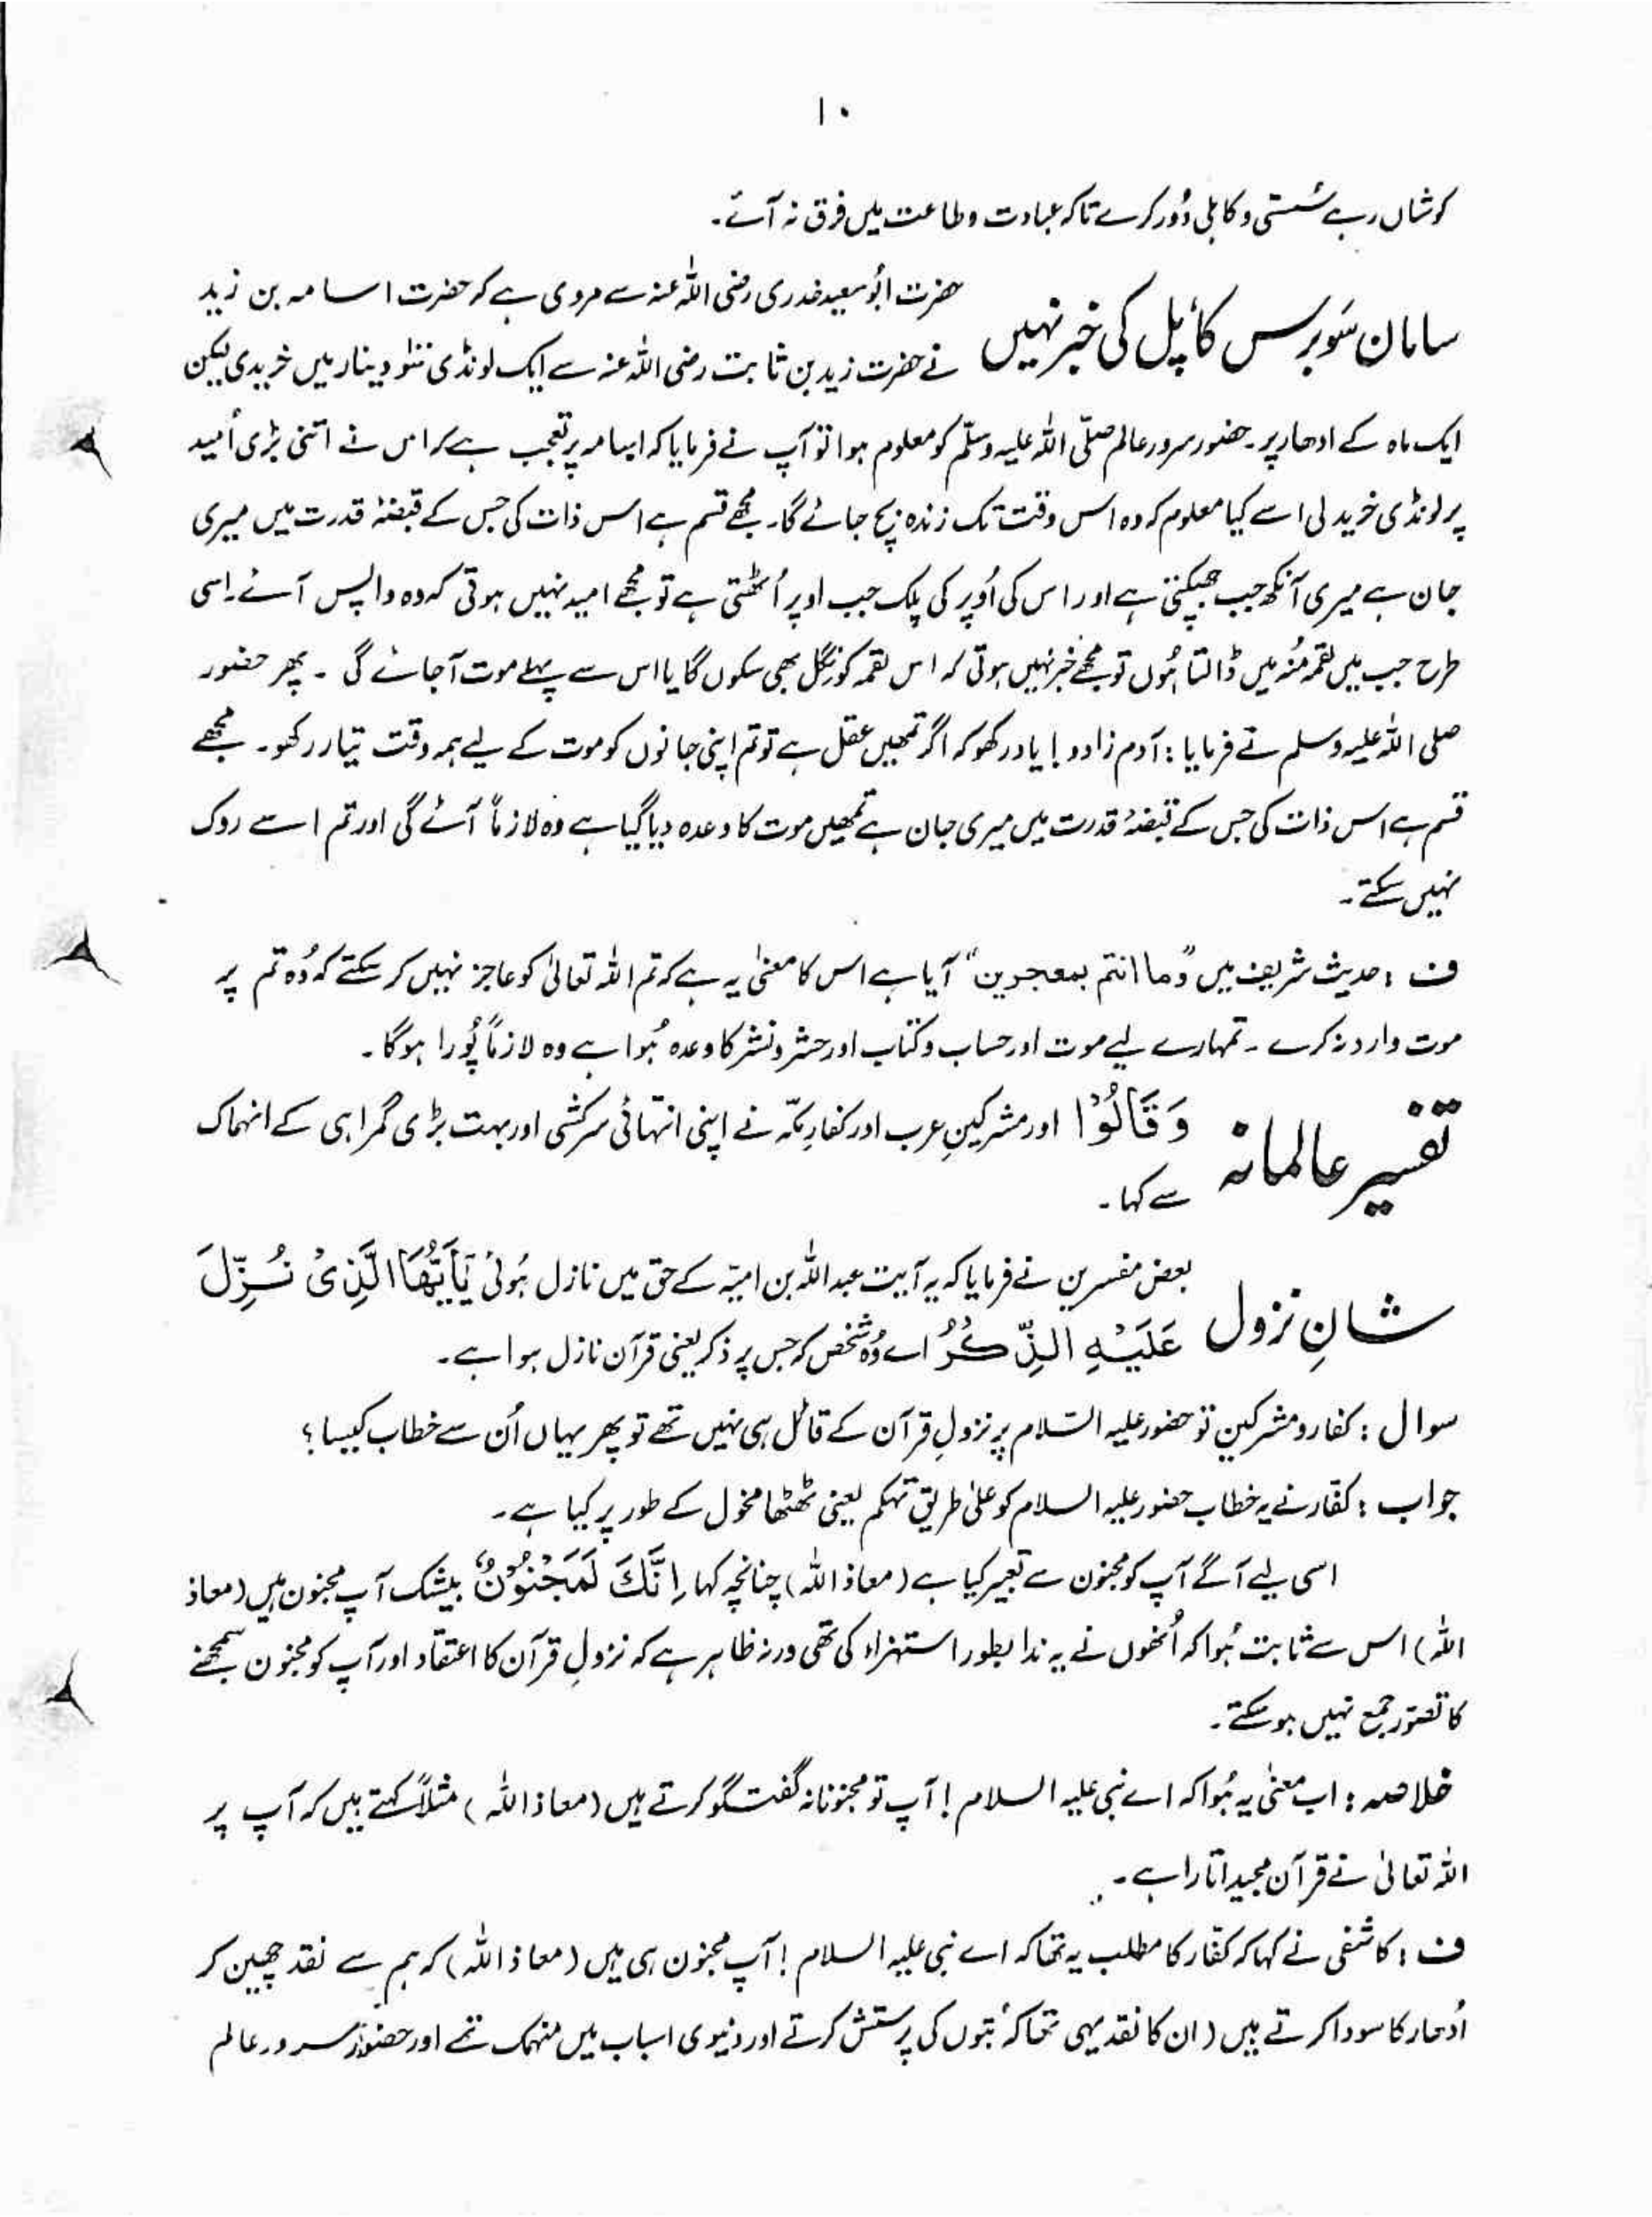 ۱۰
کوشاں رہے سُستی و کاہلی دُور کرے تاکہ عبادت و طاعت میں فرق نہ آئے۔
سامان سَو برس کا پل کی خبر نہیں
حضرت ابُو سعید خدری رضی اللہ عنہ سے مروی ہے کہ حضرت اسامہ بن زید
نے حضرت زید بن ثابت رضی اللہ عنہ سے ایک لونڈی سَو دینار میں خریدی لیکن
ایک ماہ کے ادھار پر۔ حضور سرور عالم صلّی اللہ علیہ وسلّم کو معلوم ہوا تو آپ نے فرمایا کہ اسامہ پر تعجب ہے کہ اس نے اتنی بڑی اُمید
پر لونڈی خرید لی اسے کیا معلوم کہ وہ اس وقت تک زندہ بچ جائے گا۔ مجھے قسم ہے اس ذات کی جس کے قبضۂ قدرت میں میری
جان ہے میری آنکھ جب جھپکتی ہے اور اس کی اُوپر کی پلک جب اوپر اُٹھتی ہے تو مجھے امید نہیں ہوتی کہ وہ واپس آئے۔ اسی
طرح جب میں لقمہ مُنہ میں ڈالتا ہُوں تو مجھے خبر نہیں ہوتی کہ اس لقمہ کو نِگل بھی سکوں گا یا اس سے پہلے موت آجائے گی ۔ پھر حضور
صلی اللہ علیہ وسلم نے فرمایا : آدم زادو! یاد رکھو کہ اگر تمھیں عقل ہے تو تم اپنی جانوں کو موت کے لیے ہمہ وقت تیار رکھو۔ مجھے
قسم ہے اس ذات کی جس کے قبضۂ قدرت میں میری جان ہے تمھیں موت کا وعدہ دیا گیا ہے وہ لازماً آئے گی اور تم اسے روک
نہیں سکتے۔
ف : حدیث شریف میں "وما انتم بمعجرین" آیا ہے اس کا معنیٰ یہ ہے کہ تم اللہ تعالیٰ کو عاجز نہیں کر سکتے کہ وُہ تم پر
موت وارد نہ کرے ۔ تمہارے لیے موت اور حساب و کتاب اور حشر و نشر کا وعدہ ہُوا ہے وہ لازماً پُورا ہوگا۔
تفسیر عالمانہ
وَقَالُوْا اور مشرکینِ عرب اور کفارِ مکّہ نے اپنی انتہائی سرکشی اور بہت بڑی گمراہی کے انہماک
سے کہا۔
شانِ نزول
بعض مفسرین نے فرمایا کہ یہ آیت عبداللہ بن امیّہ کے حق میں نازل ہُوئی یٰۤاَیُّهَا الَّذِیْ نُزِّلَ
عَلَیْهِ الذِّکْرُ اے وُہ شخص کہ جس پر ذکر یعنی قرآن نازل ہوا ہے۔
سوال : کفار و مشرکین تو حضور علیہ السّلام پر نزولِ قرآن کے قائل ہی نہیں تھے تو پھر یہاں اُن سے خطاب کیسا ؟
جواب : کفّار نے یہ خطاب حضور علیہ السلام کو علیٰ طریق تہکم یعنی ٹھٹھا مخول کے طور پر کیا ہے۔
اسی لیے آگے آپ کو مجنون سے تعبیر کیا ہے (معاذ اللہ) چنانچہ کہا اِنَّكَ لَمَجْنُوْنٌ بیشک آپ مجنون ہیں (معاذ
اللہ) اس سے ثابت ہُوا کہ اُنھوں نے یہ ندا بطور استہزاء کی تھی ورنہ ظاہر ہے کہ نزولِ قرآن کا اعتقاد اور آپ کو مجنون سمجھنے
کا تصوّر جمع نہیں ہو سکتے۔
خلاصہ : اب معنیٰ یہ ہُوا کہ اے نبی علیہ السلام ! آپ تو مجنونانہ گفتگو کرتے ہیں (معاذ اللہ) مثلاً کہتے ہیں کہ آپ پر
اللہ تعالیٰ نے قرآن مجید اتارا ہے۔
ف : کاشفی نے کہا کہ کفّار کا مطلب یہ تھا کہ اے نبی علیہ السلام ! آپ مجنون ہی ہیں (معاذ اللہ) کہ ہم سے نقد چھین کر
اُدھار کا سودا کرتے ہیں (ان کا نقد یہی تھا کہ بُتوں کی پرستش کرتے اور دنیوی اسباب میں منہمک تھے اور حضور سرور عالم